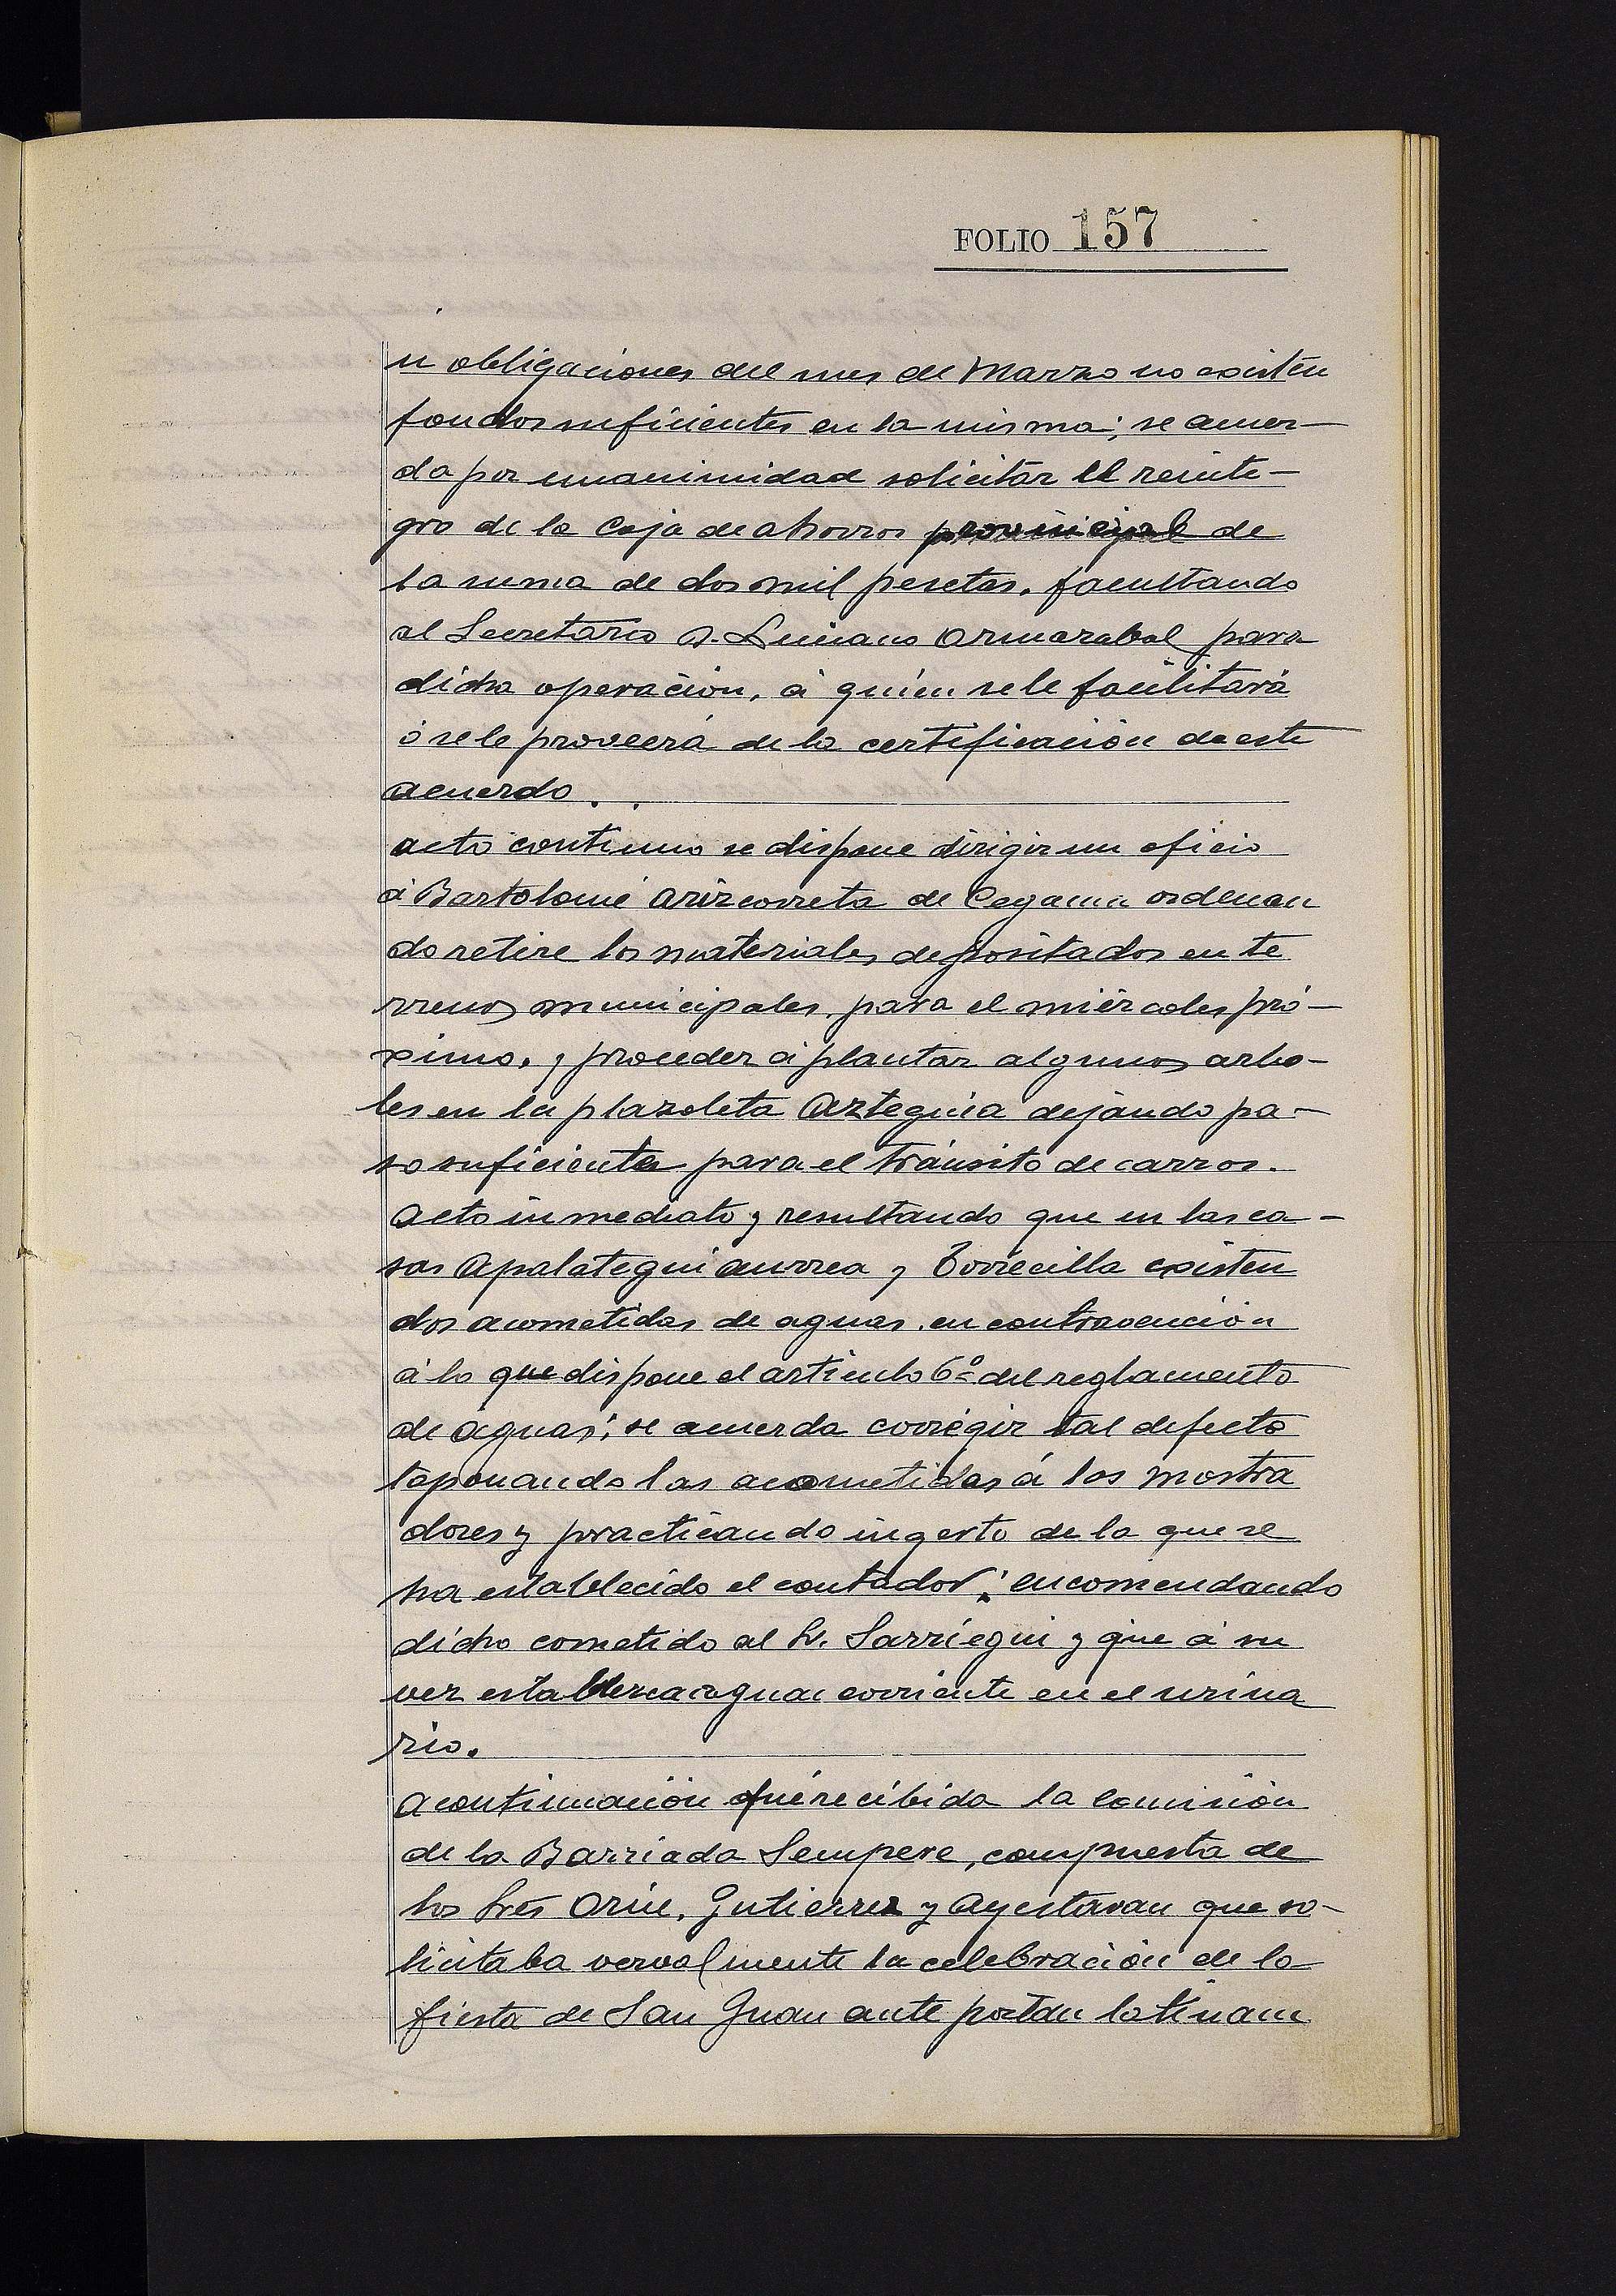 FOLIO 157
u obligaciones del mes de Marzo no existen
fondos suficientes en la misma; se acuer-
da por unanimidad solicitar el reinte-
gro de la Caja de ahorros provincial de
la suma de dos mil pesetas, facultando
al Secretario D. Luciano Ormazabal para
dicha operación, á quien se le facilitará
ó se le proveerá de la certificación de este
acuerdo.
acto continuo se dispone dirigir un oficio
á Bartolomé Arizcorreta de Cegama ordenan
do retire los materiales depositados en te
rrenos municipales, para el miércoles pró-
ximo, y proceder á plantar algunos arbo-
les en la plazoleta Arteguia dejando pa-
so suficiente para el tránsito de carros.
Acto inmediato y resultando que en las ca-
sas Apalategui aurrea y Torrecilla existen
dos acometidas de aguas, en contravención
á lo que dispone el articulo 6º del reglamento
de aguas; se acuerda corregir tal defecto
taponando las acometidas á los mostra
dores y practicando ingerto de la que se
ha establecido el contador; encomendando
dicho cometido al Sr. Sarriegui y que á su
vez establezca agua corriente en el urina
rio.
A continuación fué recibida la comisión
de la Barriada Sempere, compuesta de
los Srés Oria, Gutierrez y Ayestaran que so-
licitaba vervalmente la celebración de la
fiesta de San Juan ante portan latinam